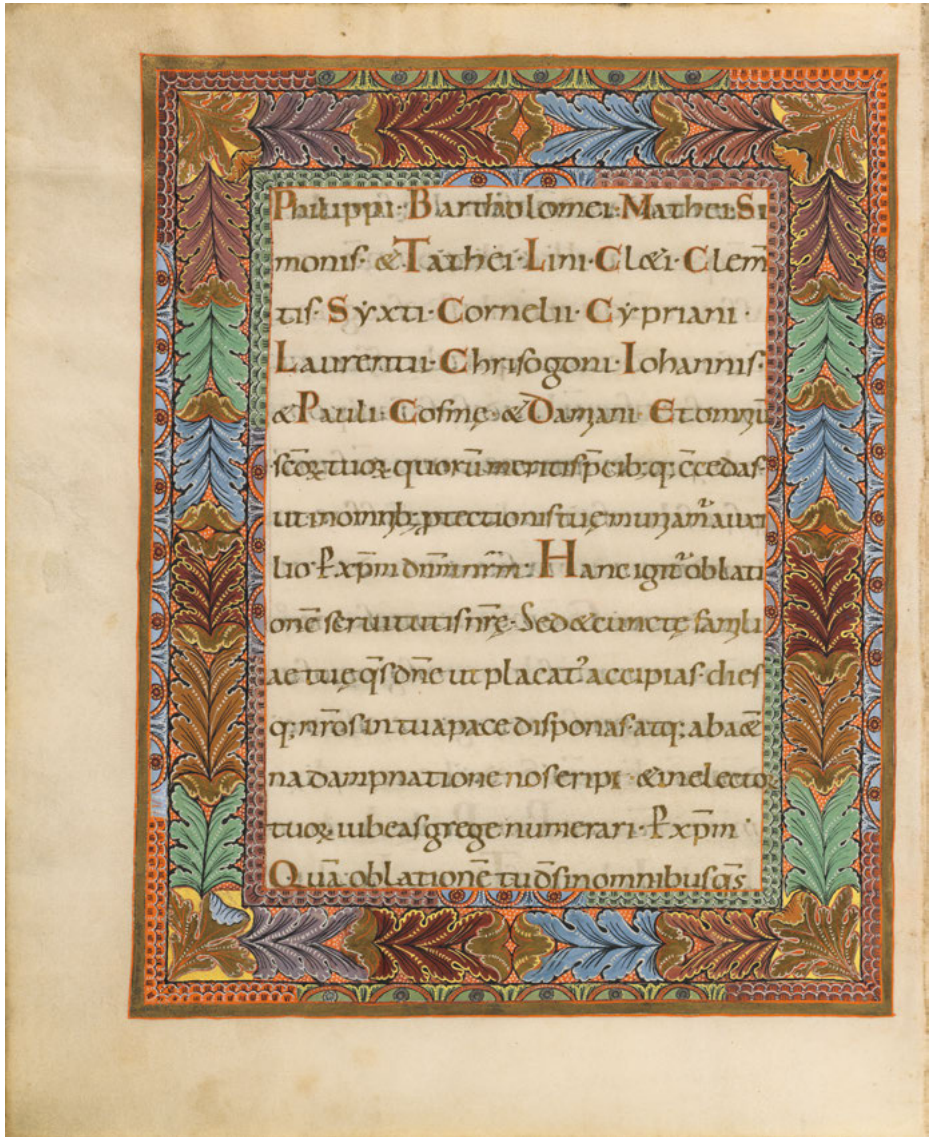 Philippi · Bartholomei · Mathei · Si
monis · & Tathei · Lini · Cl&i · Clem̄
tis · Syxti · Cornelii · Cypriani ·
Laurentii · Chrisogoni · Iohannis ·
& Pauli · Cosmę · & Damiani · Et omniū
scōꝝ tuoꝝ · quorū meritis p̄cib; q; c̄cedas ·
ut in omnib; ꝓtectionis tuę muniam̄ auxi
lio · P xp̄m dn̄m nr̄m · Hanc igit̄ oblati
onē seruitutis nr̄ę · Sed & cunctę famili
ae tuę qs̄ dn̄e ut placat᾿ accipias · dies
q; nr̄os in tua pace disponas · atq; ab a&̄
na dampnatione nos eripi · & in electoꝝ
tuoꝝ iubeas grege numerari · P xp̄m ·
Quā oblationē tu ds̄ in omnibus qs̄